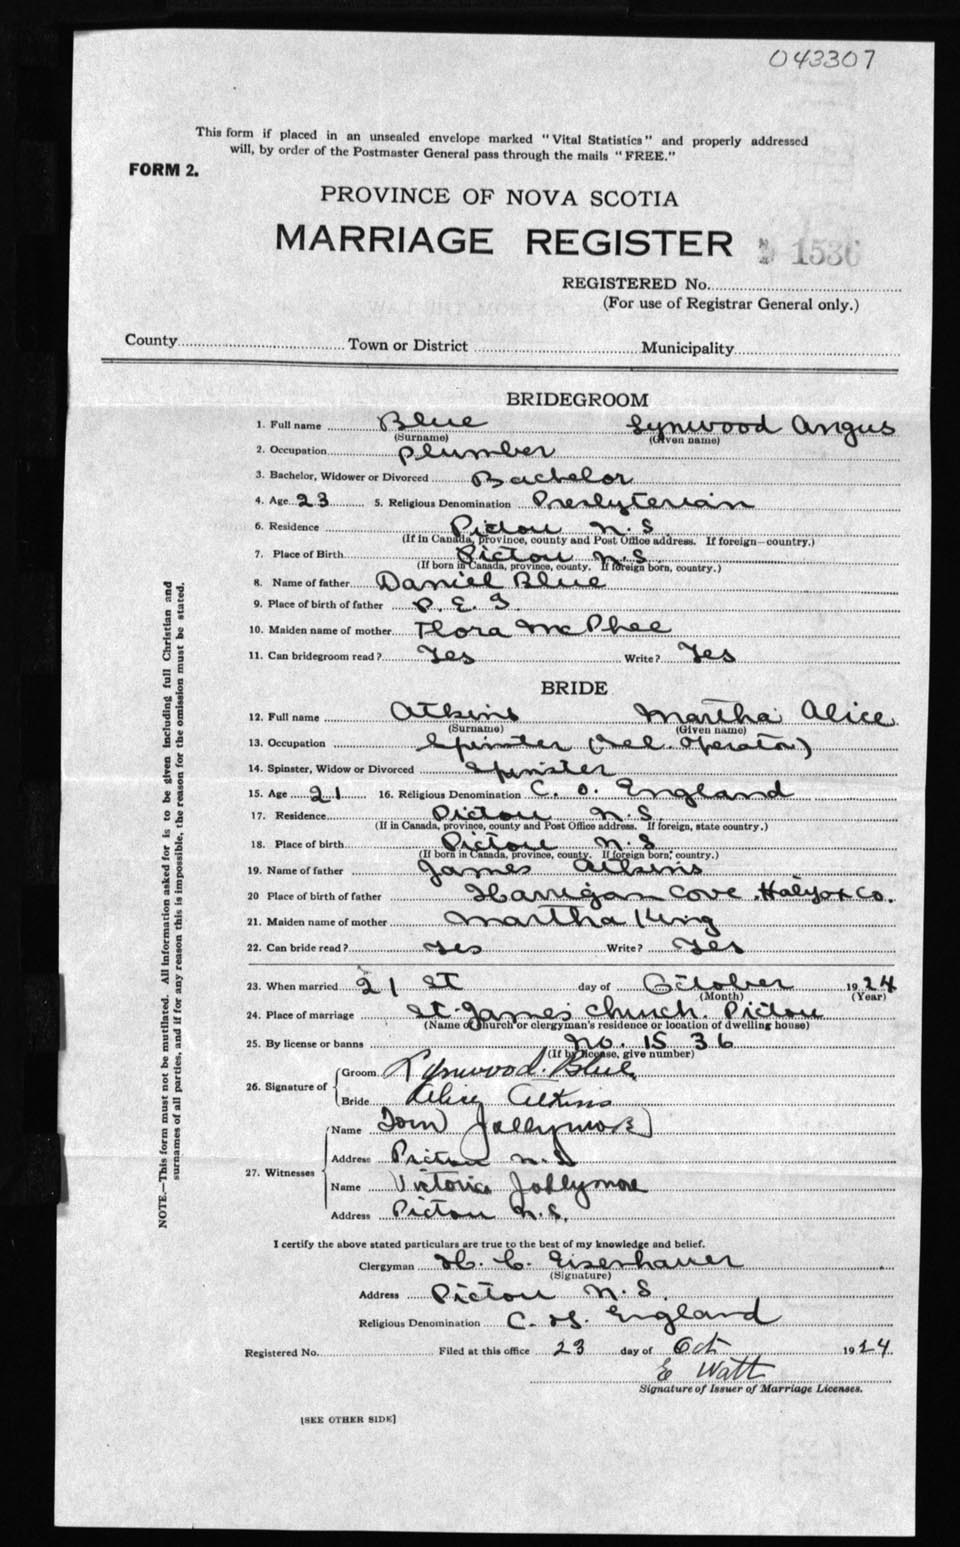 043307
This form if placed in an unsealed envelope marked "Vital Statistics" and properly addressed
will, by order of the Postmaster General pass through the mails "FREE."
FORM 2.
PROVINCE OF NOVA SCOTIA
MARRIAGE REGISTER 1536
REGISTERED No.
(For use of Registrar General only.)
County Town or District Municipality
BRIDEGROOM
1. Full name Blue Lynwood Angus
(Surname) (Given name)
2. Occupation plumber
3. Bachelor, Widower or Divorced Bachelor
4. Age 23 5. Religious Denomination Presbyterian
6. Residence Pictou N.S
(If in Canada, province, county and Post Office address. If foreign—country.)
7. Place of Birth Pictou N.S
(If born in Canada, province, county. If foreign born, country.)
8. Name of father Daniel Blue
9. Place of birth of father P. E. I.
10. Maiden name of mother Flora McPhee
11. Can bridegroom read? Yes Write? Yes
BRIDE
12. Full name Atkins Martha Alice
(Surname) (Given name)
13. Occupation Spinster (Tel. Operator)
14. Spinster, Widow or Divorced Spinster
15. Age 21 16. Religious Denomination C. o. England
17. Residence Pictou N.S.
(If in Canada, province, county and Post Office address. If foreign, state country.)
18. Place of birth Pictou N.S
(If born in Canada, province, county. If foreign born, country.)
19. Name of father James Atkins
20 Place of birth of father Harrigan Cove, Halifax Co.
21. Maiden name of mother Martha King
22. Can bride read? Yes Write? Yes
23. When married 21 st day of October 1924
(Month) (Year)
24. Place of marriage St. James Church. Pictou
(Name of church or clergyman's residence or location of dwelling house)
25. By license or banns No. 1536
(If by license, give number)
26. Signature of Groom Lynwood. Blue
Bride Alice Atkins
27. Witnesses Name Tom Jollymore
Address Pictou N.S
Name Victoria Jollymore
Address Pictou N.S.
I certify the above stated particulars are true to the best of my knowledge and belief.
Clergyman H. C. Eisenhauer
(Signature)
Address Pictou N.S.
Religious Denomination C. of. England
Registered No. Filed at this office 23 day of Oct 1924.
E Watt
Signature of Issuer of Marriage Licenses.
[SEE OTHER SIDE]
NOTE.—This form must not be mutilated. All information asked for is to be given including full Christian and
surnames of all parties, and if for any reason this is impossible, the reason for the omission must be stated.